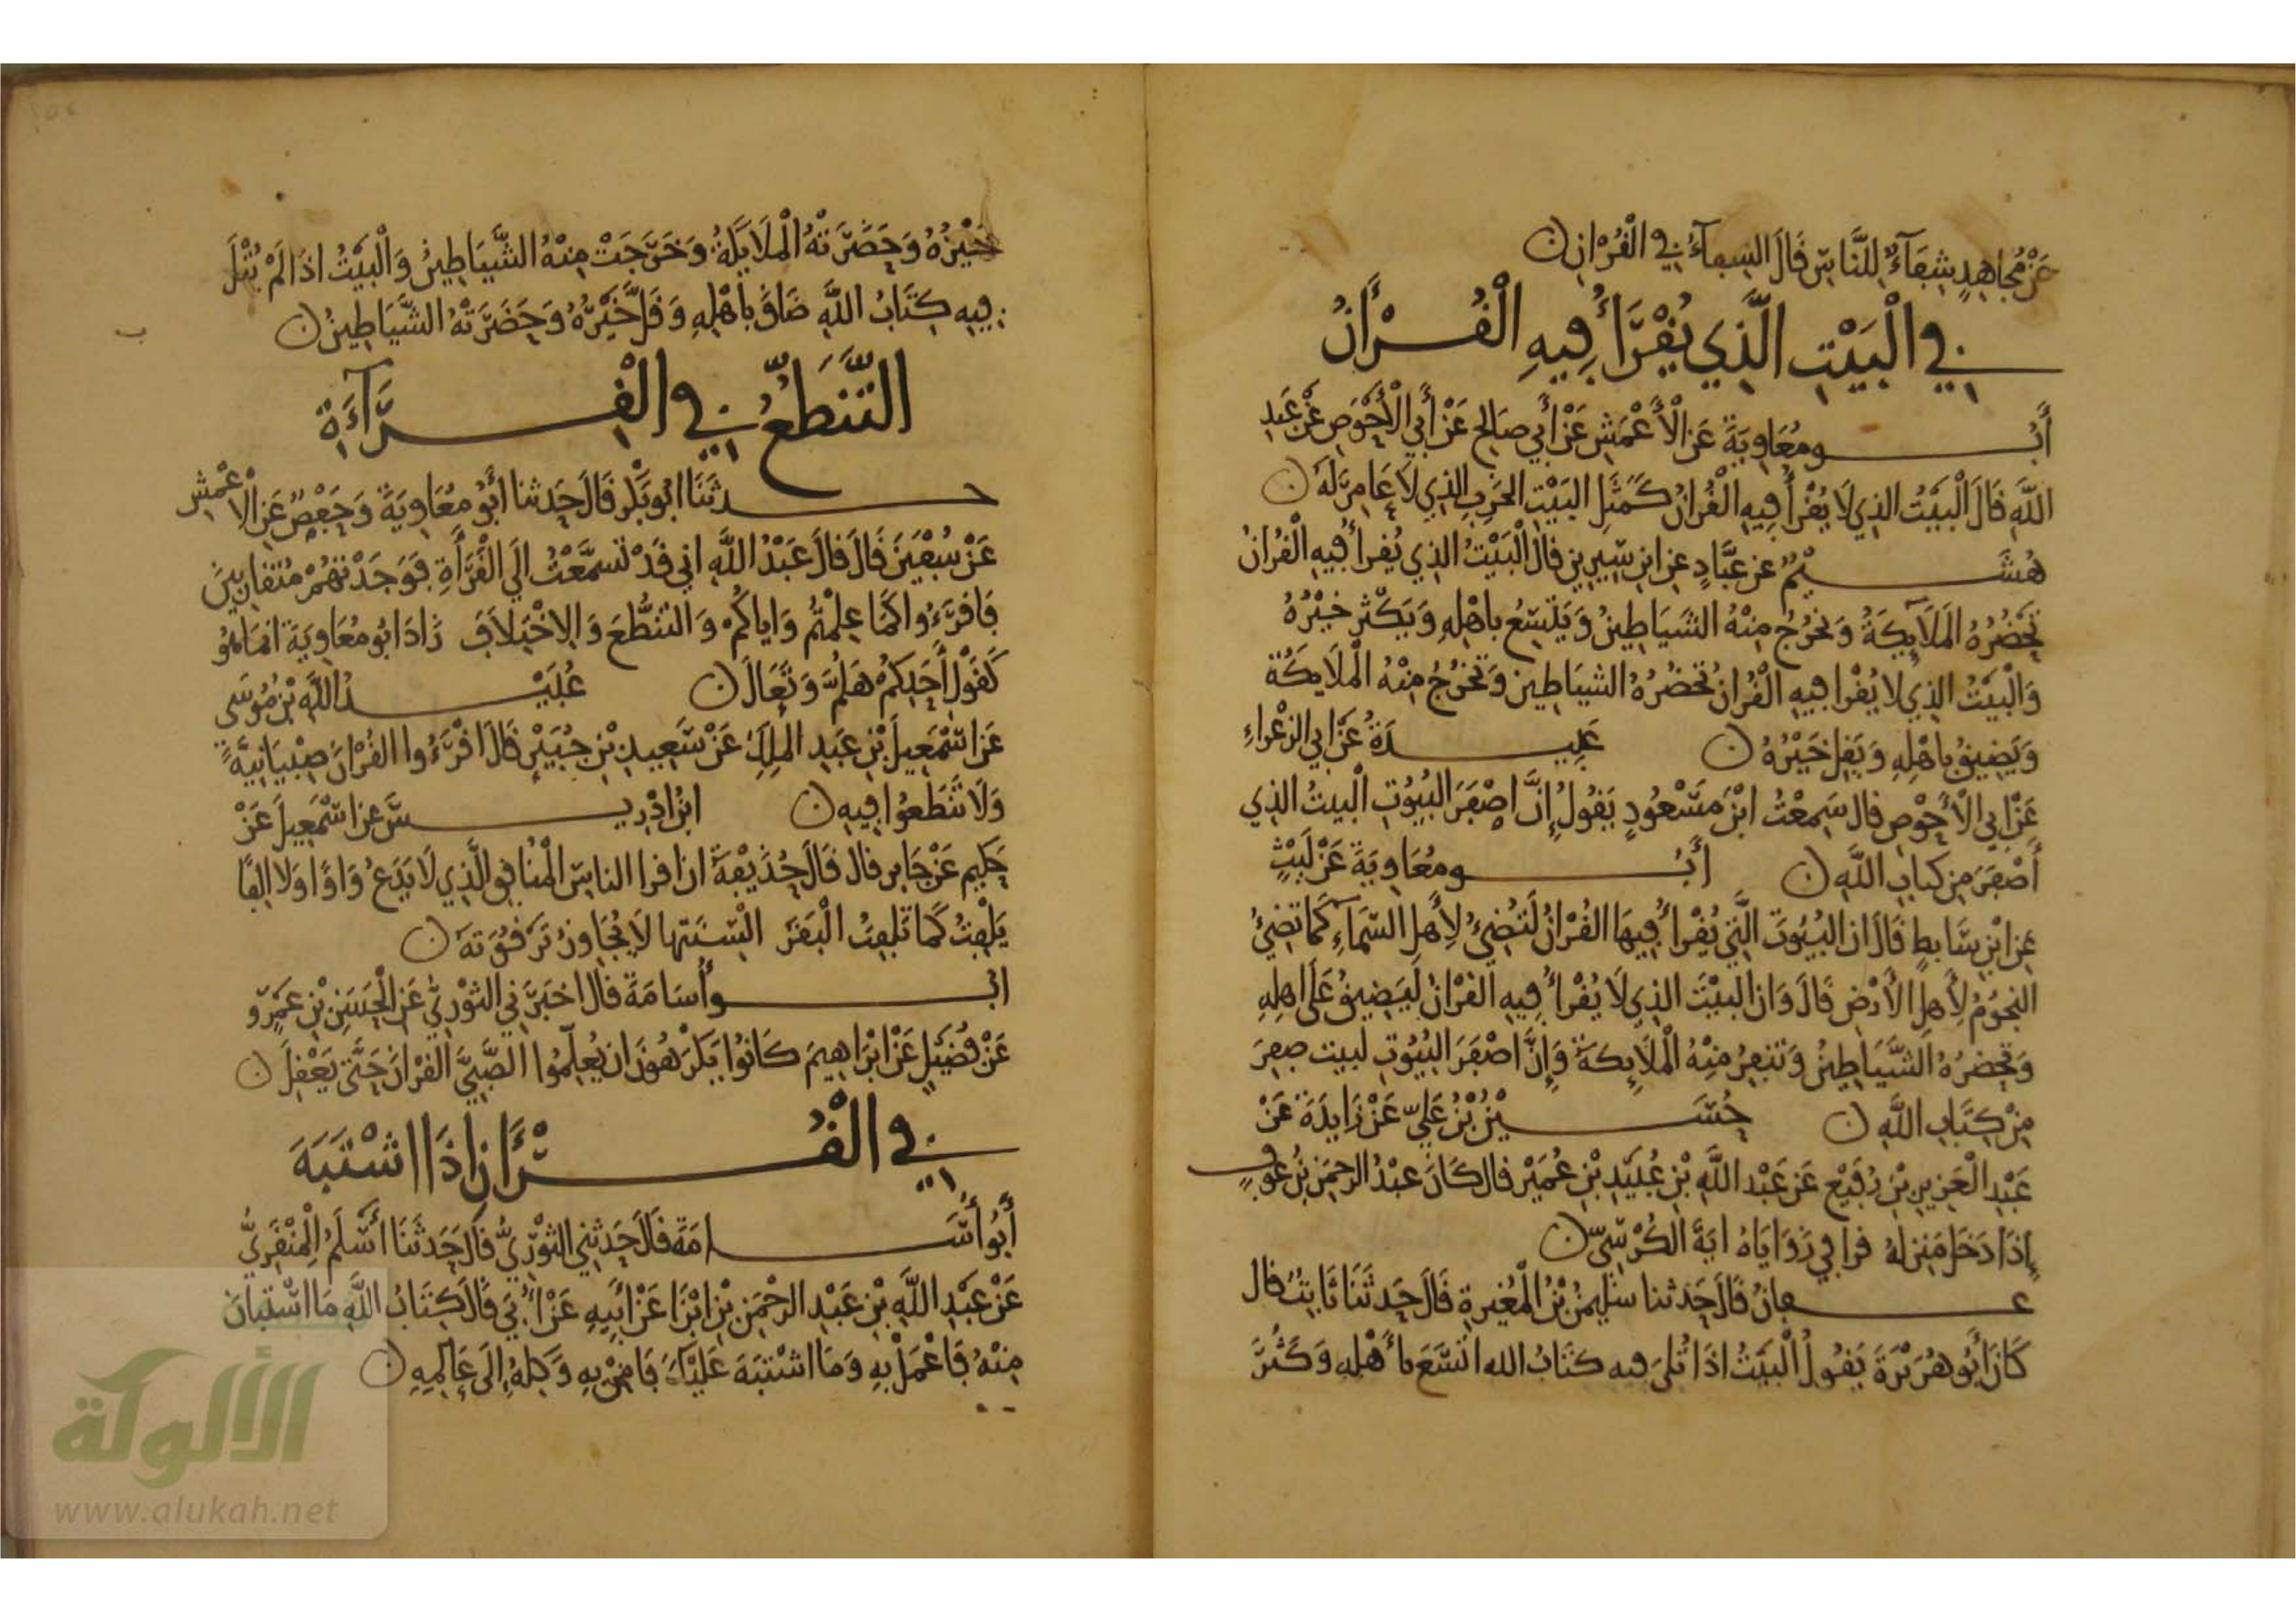 عَنْ مُجَاهِدٍ شِفَآءٌ لِلنَّاسِ قَالَ الشفآءُ فِي الْقُرْانِ
فِي الْبَيْتِ الَّذِي يُقْرَأُ فِيهِ الْقُرْأَنُ
أَبُو مُعَاوِيَةَ عَنِ الْأَعْمَشِ عَنْ أَبِي صَالِحٍ عَنْ أَبِي الْأَحْوَصِ عَنْ عَبْدِ
اللَّهِ قَالَ الْبَيْتُ الذِي لَا يُقْرَأُ فِيهِ الْقُرْانُ كَمَثَلِ البَيْتِ الخَرِبِ الذِي لَا عَامِرَ لَهُ
هُشَيْمٌ عَن عَبَّادٍ عِنِ ابْنِ سِيرِينَ قَالَ الْبَيْتُ الذِي يُقْرأُ فِيهِ الْقُرانُ
تَحْضُرُهُ المَلَايِكَةُ وَتَخْرُجُ مِنْهُ الشَيَاطِينُ وَيَتَّسِعُ بِاهْلِهِ وَيَكْثُر خَيْرُهُ
وَالْبَيْتُ الذِي لا يُقْرا فِيهِ الْقُرانُ تَحْضُرُهُ الشيَاطِين وَتَخْرُجُ مِنْهُ الْمَلَايِكَة
وَيَضِيقُ بِاهْلِهِ وَيَقِلُّ خَيْرُهُ عَبِيدَةُ عَنْ ابِي الزعْراءِ
عَنْ ابِي الْأَحْوَصِ قال سَمِعْتُ ابْنَ مَسْعُودٍ يَقُولُ إِنَّ اصْفَرَ البُيُوتِ الْبَيتُ الذِي
أَصْفَرَ مِن كِتابِ اللَّهِ أَبُو مُعَاوِيَةَ عَنْ لَيْثٍ
عِنِ ابْنِ سَابِطٍ قَالَ ان البُيُوتَ الَّتِي يُقْرأُ فِيهَا القُرْانُ لَتُضِيُ لِأَهلِ السَّمَآءِ كَمَا تضِيُ
النجُومُ لِأَهلِ الْأَرْضِ قَالَ وَان البيْتَ الذِي لَا يُقْرأُ فِيهِ القُرْانُ لَيَضِيقُ عَلَى اهلِهِ
وَتَحضرُهُ الشَّيَاطِينُ وَتَنفِرُ مِنْهُ الْمَلَايِكَة وَإِنَّ اصْفَرَ البُيُوتِ لبيت صفِرَ
مِنْ كِتَابِ اللَّهِ حُسَيْنُ بْنُ عَلِيٍّ عَنْ زَايِدَةَ عَنْ
عَبْدِ الْعَزِيزِ بْنِ رُفَيْعٍ عَنْ عَبْدِ اللَّهِ بْنِ عُبَيْدِ بْنِ عُمَيْرٍ قال كَانَ عبْدُ الرحمَنِ بْنُ عَوْفٍ
إِذَا دَخَلَ مَنِزلَهُ قرا فِي زَوَايَاهُ ايَةَ الكُرْسِيِّ
عفانُ قَالَ حَدثنا سُلَيمنُ بْنُ الْمُغِيرةِ قَالَ حَدثَنَا ثَابِتٌ قال
كَانَ أَبُو هُرَيْرَةَ يَقُولُ الْبَيْتُ اذَا تُلِيَ فِيهِ كتَابُ الله اتسَّعَ بِأَهْلِهِ وَكَثُرَ
خَيْرُهُ وَحَضَرَتْهُ الْمَلَايِكَةُ وَخَرَجَتْ مِنْهُ الشَّيَاطِينُ وَالْبَيْتُ اذَا لَمْ يُتْلَ
فِيهِ كِتَابُ اللَّهِ ضَاقَ بِاهْلِهِ وَقَلَّ خَيْرُهُ وَحَضَرَتْهُ الشَّيَاطِينُ
التَّنَطُّعُ فِي الْقِرَآءَةِ
حدثَنَا ابُو بَكْرٍ قَالَ حَدثنا أَبُو مُعَاوِيَةَ وَحَفْصٌ عَنِ الْاعْمَشِ
عَنْ شُقْيَقٍ قَالَ قالَ عَبْدُ اللَّهِ انِي قَدْ تَسَمَّعْتُ الَى الْقَرَأَةِ فَوَجَدْتهُمْ مُتَقَارِبِينَ
فَاقرَءُوا كَمَا عِلمْتُم وَاياكُمْ وَالتنَطُّعَ وَالِاخْتِلَافَ زَادَ ابُو مُعَاوِيَةَ انمَا هُوَ
كَقَوْلِ أَحَدِكُمْ هَلُمَّ وَتَعَالَ عُبَيْدُ اللَّهِ بْنُ مُوسَى
عَن اسْمَعِيلَ بْنِ عَبْدِ المَلِكِ عَنْ سَعِيدِ بْنِ جُبَيْرٍ قَالَ اقْرَءُوا القُرْانَ صِبْيَانِيَّةً
وَلَا تنَطَّعُوا فِيهِ ابْنُ ادْرِيسَ عَن اسْمَعِيلَ عَنْ
حَكِيمٍ عَنْ جَابِرٍ قال قَالَ حُذَيْفَةُ ان اقرا الناسِ الْمُنَافِق الَّذِي لَا يَدَعُ وَاوًا وَلا الِفًا
يَلْفِتُ كَمَا تَلفِتُ الْبَقَرُ الْسِنَتها لَا يُجَاوِزُ تَرْقُوَتَهُ
ابُو أُسَامَةَ قَالَ اخبَرَنِي الثوْرِيُّ عَنِ الْحَسَنِ بْنِ عَمْرٍو
عَنْ فُضَيْلٍ عَنْ ابْرَاهِيمَ كَانُوا يَكْرَهُونَ ان يُعلِّمُوا الصَّبِيَّ القرْانَ حَتَّى يَعْقِلَ
فِي الْقُرْأَنِ اذَا اشْتَبَهَ
أَبُو أُسَامَةَ قَالَ حَدثنِي الثوْرِيُّ قَالَ حَدثَنَا أَسْلَمُ الْمِنْقَرِيُّ
عَنْ عَبْدِ اللَّهِ بْنِ عَبْدِ الرحْمَنِ بْنِ ابْزَا عَنْ أَبِيهِ عَنْ أُبَيٍّ قَالَ كِتَابُ اللَّهِ مَا اسْتبَانَ
مِنْهُ فَاعْمَلْ بِهِ وَمَا اشْتبَهَ عَلَيْكَ فَامِنْ بِهِ وَكِلْهُ إِلَى عَالِمِهِ
الألوكة
www.alukah.net